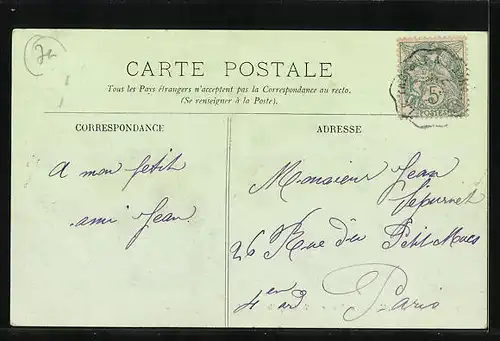 CARTE POSTALE
Tous les Pays étrangers n'acceptent pas la Correspondance au recto.
(Se renseigner à la Poste).
5
POSTES
CORRESPONDANCE
ADRESSE
A mon petit
ami Jean
Monsieur Jean
26 Rue du Petit Musc
4
Paris